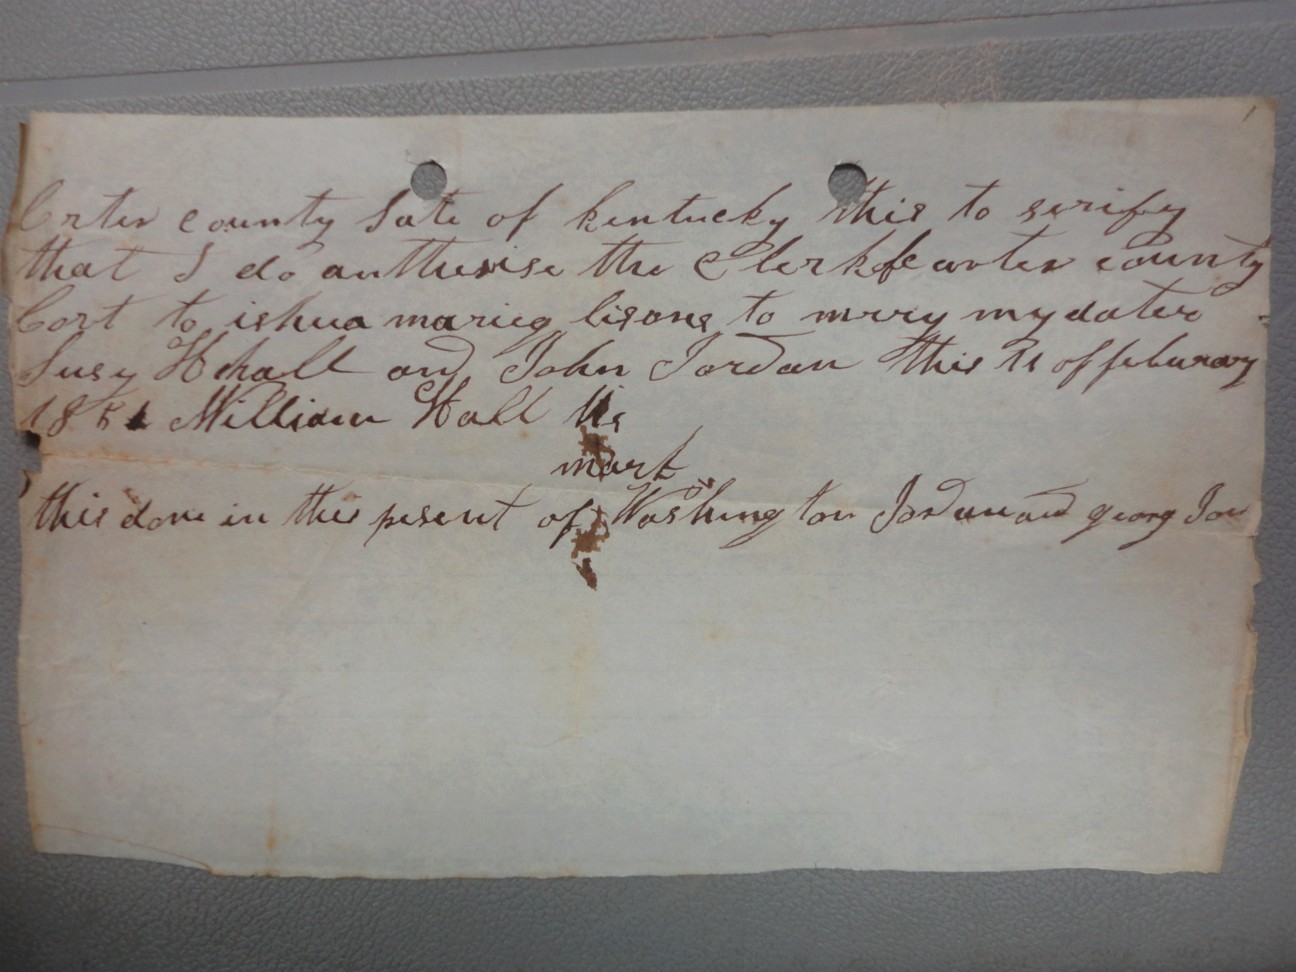 Crter county Sate of kentucky this to serify
that I do autherise the Clerk of carter county
Cort to ishua marieg lisons to mrry my dater
Susy H hall and John Jordan this 11 of feburary
1851 William Hall his
mark
this done in the pesent of Washing ton Jordan and georg Jor